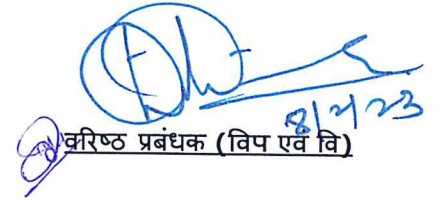 8/2/23
वरिष्ठ प्रबंधक (विप एवं वि)